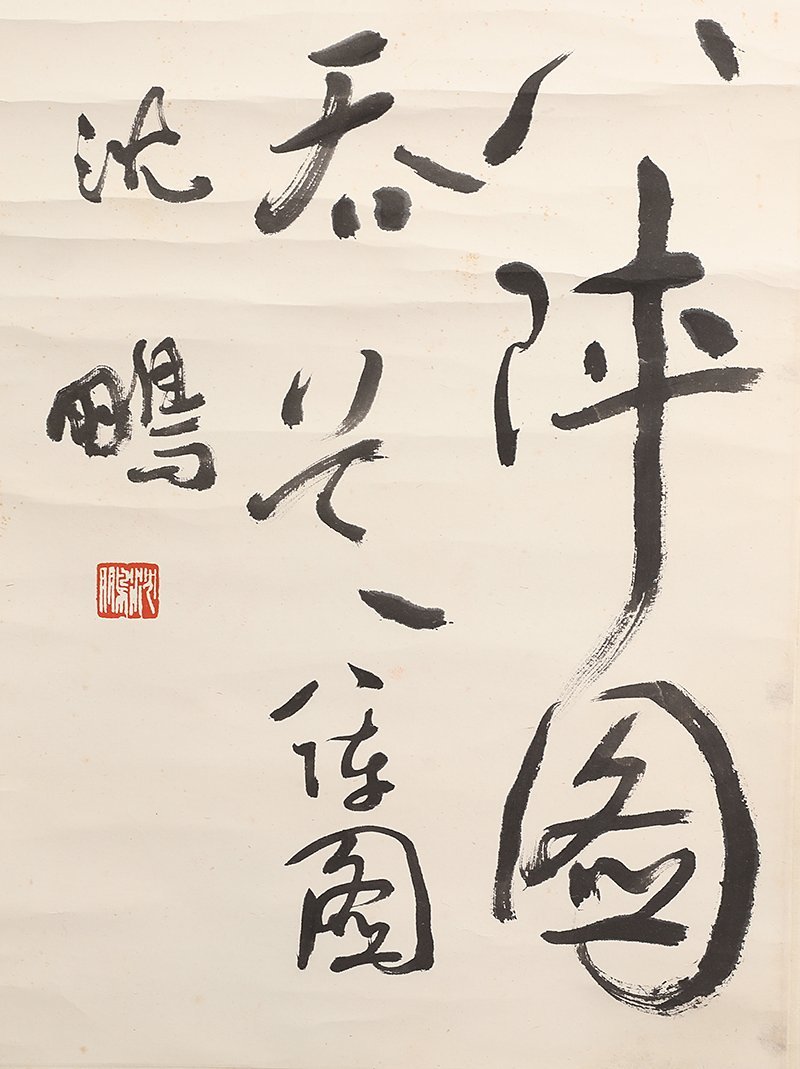 八陣圖
吞吳八陣圖
沈鵬
沈鵬